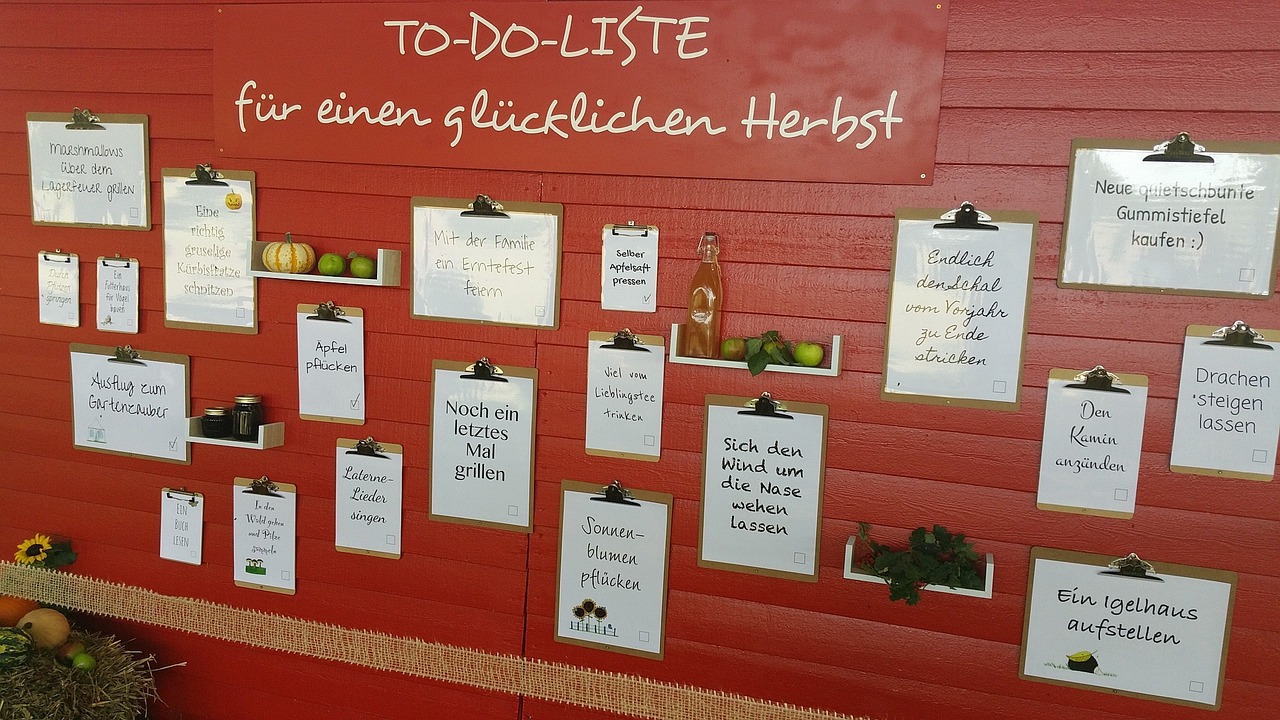 TO-DO-LISTE
für einen glücklichen Herbst
Marshmallows
über dem
Lagerfeuer grillen
Eine
richtig
gruselige
Kürbisfratze
schnitzen
Mit der Familie
ein Erntefest
feiern
Selber
Apfelsaft
pressen
Endlich
den Schal
vom Vorjahr
zu Ende
stricken
Neue quietschbunte
Gummistiefel
kaufen :)
Durch
Pfützen
springen
Ein
Futterhaus
für Vögel
bauen
Äpfel
pflücken
Viel vom
Lieblingstee
trinken
Drachen
steigen
lassen
Ausflug zum
Gartenzauber
Noch ein
letztes
Mal
grillen
Sich den
Wind um
die Nase
wehen
lassen
Den
Kamin
anzünden
EIN
BUCH
LESEN
In den
Wald gehen
und Pilze
sammeln
Laterne-
Lieder
singen
Sonnen-
blumen
pflücken
Ein Igelhaus
aufstellen